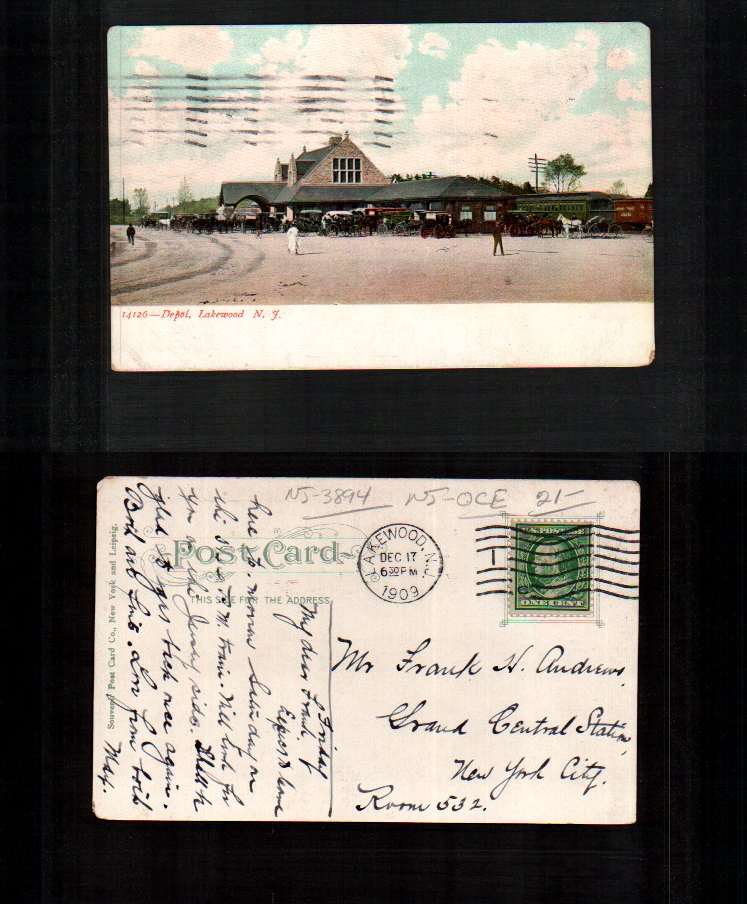 14126—Depot, Lakewood N. J.
NJ-3894 NJ-OCE 21-
Post Card
THIS SIDE FOR THE ADDRESS
LAKEWOOD, N.J.
DEC 17
6 30 PM
1909
U.S. POSTAGE
ONE CENT
Souvenir Post Card Co., New York and Leipzig.
Friday
My dear Frank
Expect to leave
here to-morrow Sunday on
the A.M. train. Will look for
you on the Jersey side. Shall be
glad to get back once again.
Both are fine. Love from both
May.
Mr Frank H. Andrews,
Grand Central Station,
New York City.
Room 532.